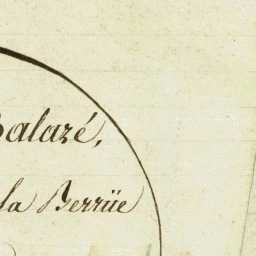 Balazé,
la Berrüe